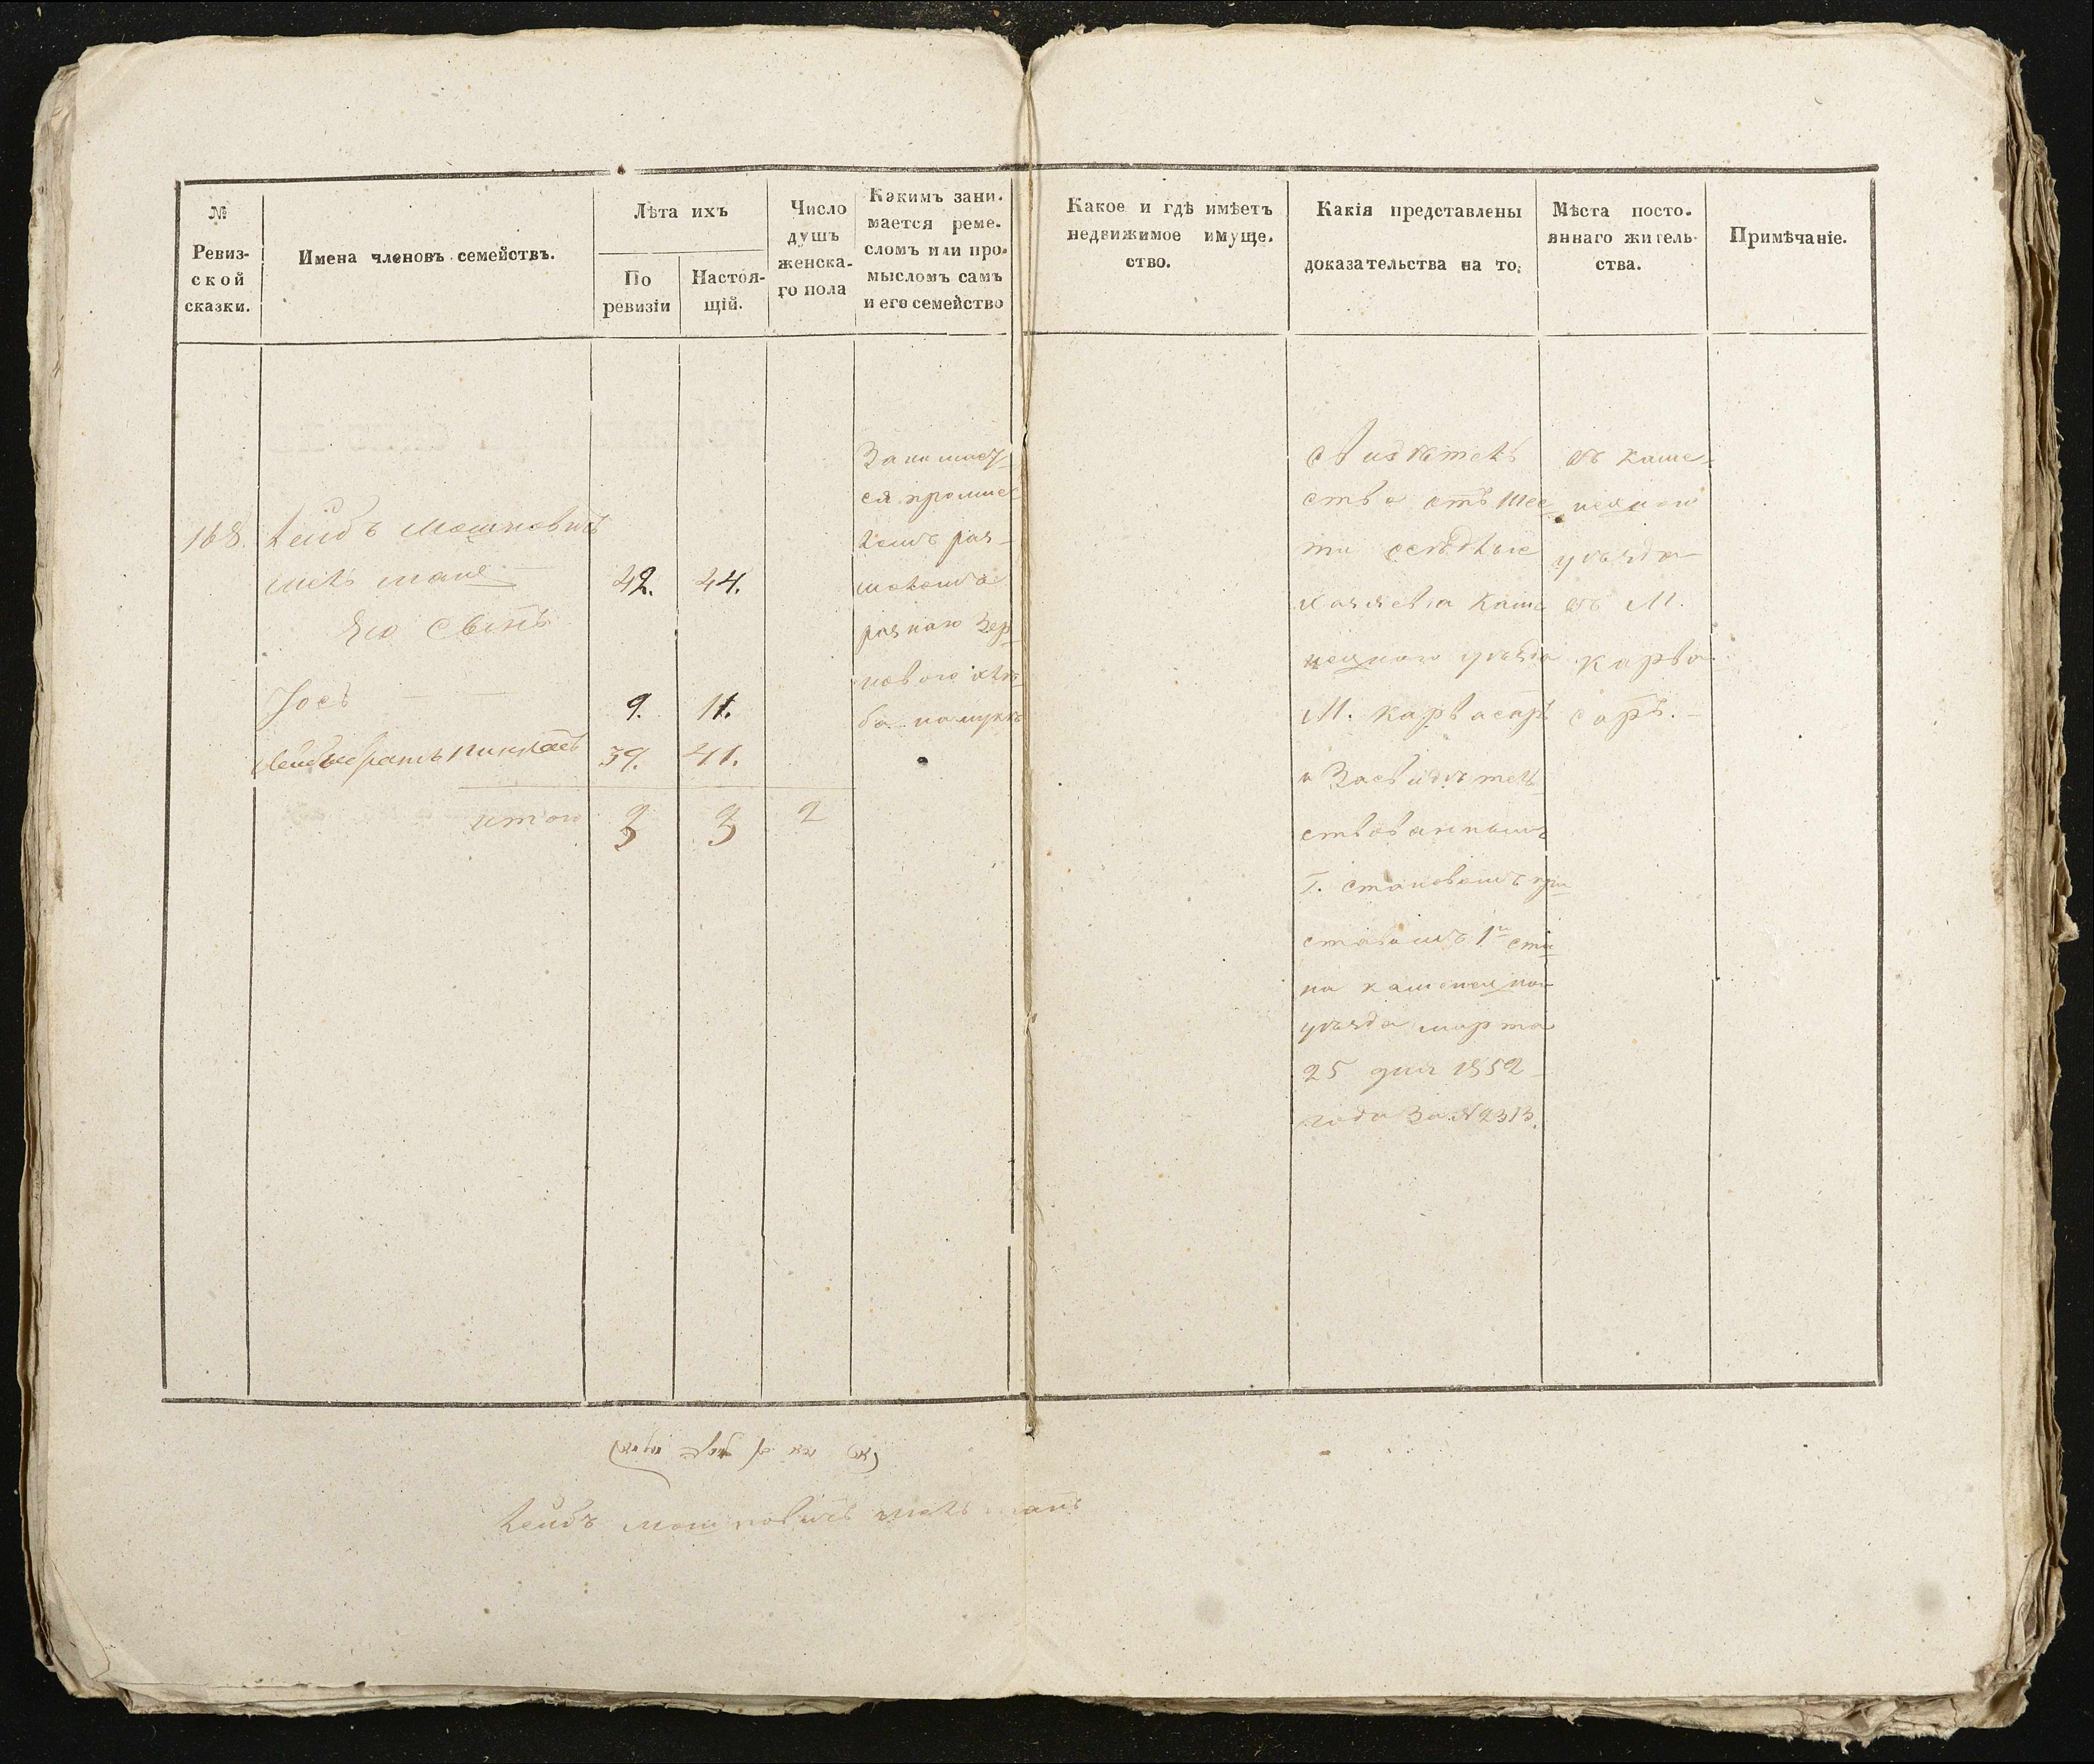 №
Ревиз-
ской
сказки.
Имена членовъ семействъ.
Лѣта ихъ
По
ревизіи
Настоя-
щій.
Число
душъ
женска-
го пола
Какимъ зани-
мается реме-
сломъ или про-
мысломъ самъ
и его семейство
Какое и гдѣ имѣетъ
недвижимое имуще-
ство.
Какія представлены
доказательства на то.
Мѣста посто-
яннаго житель-
ства.
Примѣчаніе.
168. Лейбъ Мошковичъ
42. 44.
Его сынъ
Іось 9. 11.
братъ 39. 41.
итого 3 3 2
Занимает-
ся промыс-
ломъ раз-
молома
разнаго зер-
новаго хлѣ-
ба на муку
Свидѣтель-
ство отъ шес-
ти осѣдлыхъ
хозяевъ Каме
нецкаго уѣзда
М. Карвасаръ
и засвидѣтель-
ствованнымъ
Г. становымъ при-
ставомъ 1го ста-
на Каменецкаго
уѣзда марта
25 дня 1852
года за № 2313.
въ Каме-
нецкомъ
уѣздѣ
въ М.
Карва
сарѣ.
Лейбъ Мошковичъ